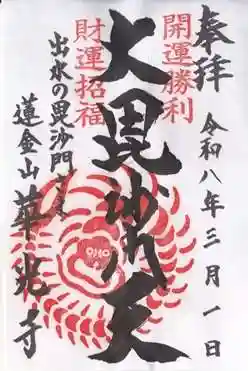 奉拝
令和八年三月一日
開運勝利
大毘沙門天
財運招福
出水の毘沙門さま
蓮金山 華光寺